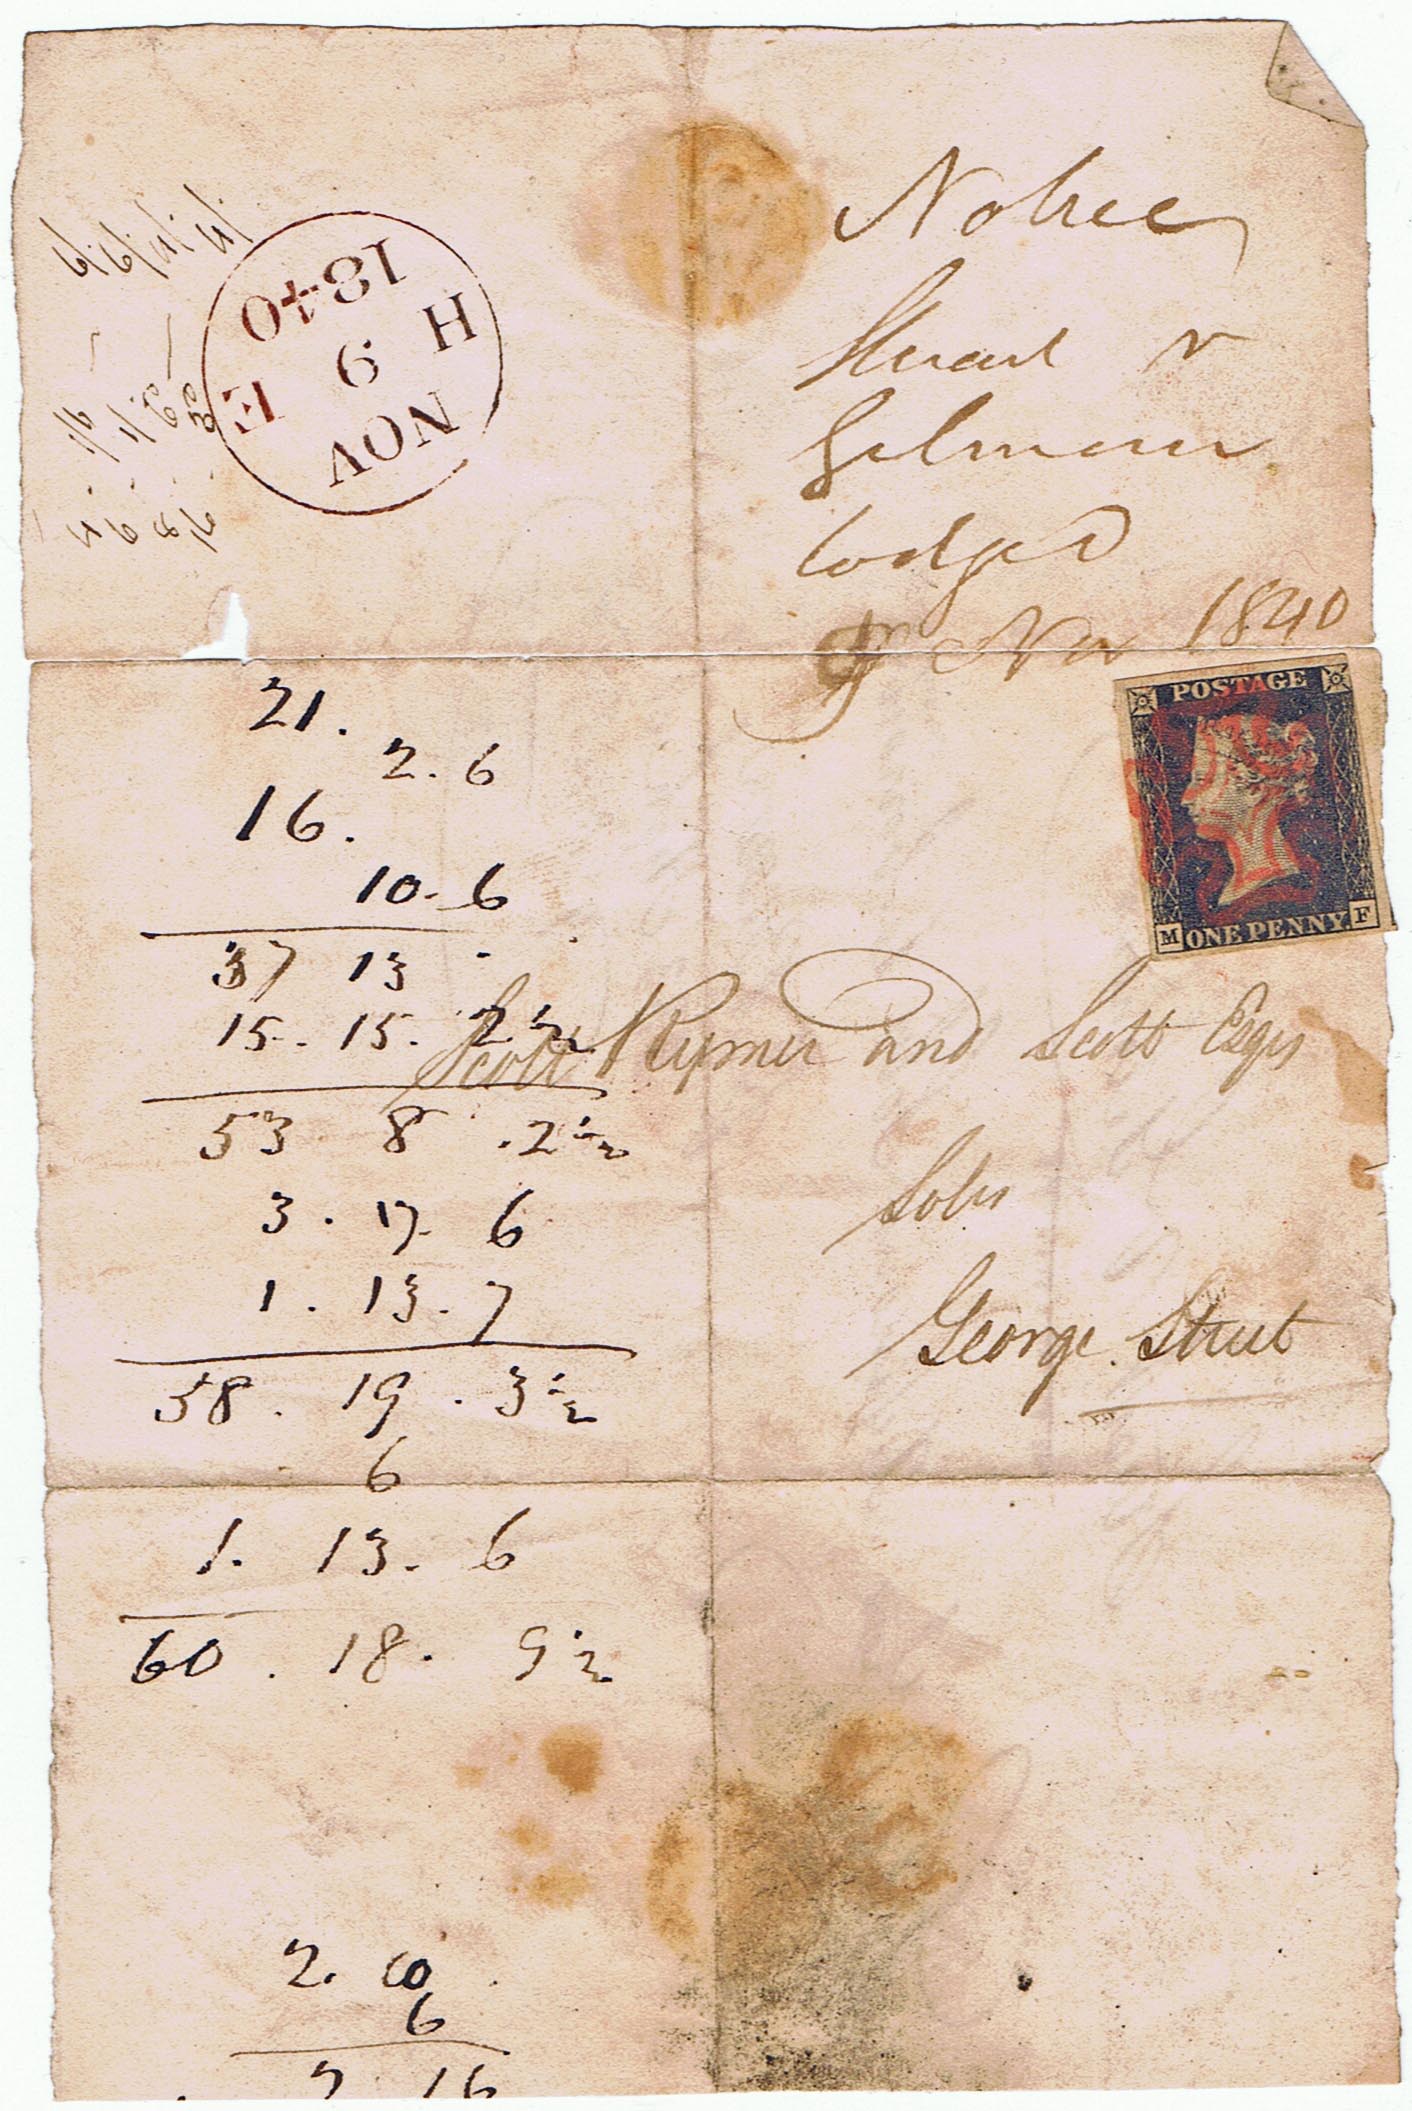 Notice
Stuart v
Gilmour
lodged
9 Nov 1840
1840
H 9 E
NOV
21.
2. 6
16.
10. 6
37 13 .
15. 15. 2½
53 8 . 2½
3. 17. 6
1. 13. 7
58. 19. 3½
6
1. 13. 6
60. 18. 9½
2. 10
6
2 16
POSTAGE
M ONE PENNY. F
Scott Rymer and Scott Esqrs
Solrs
George Street